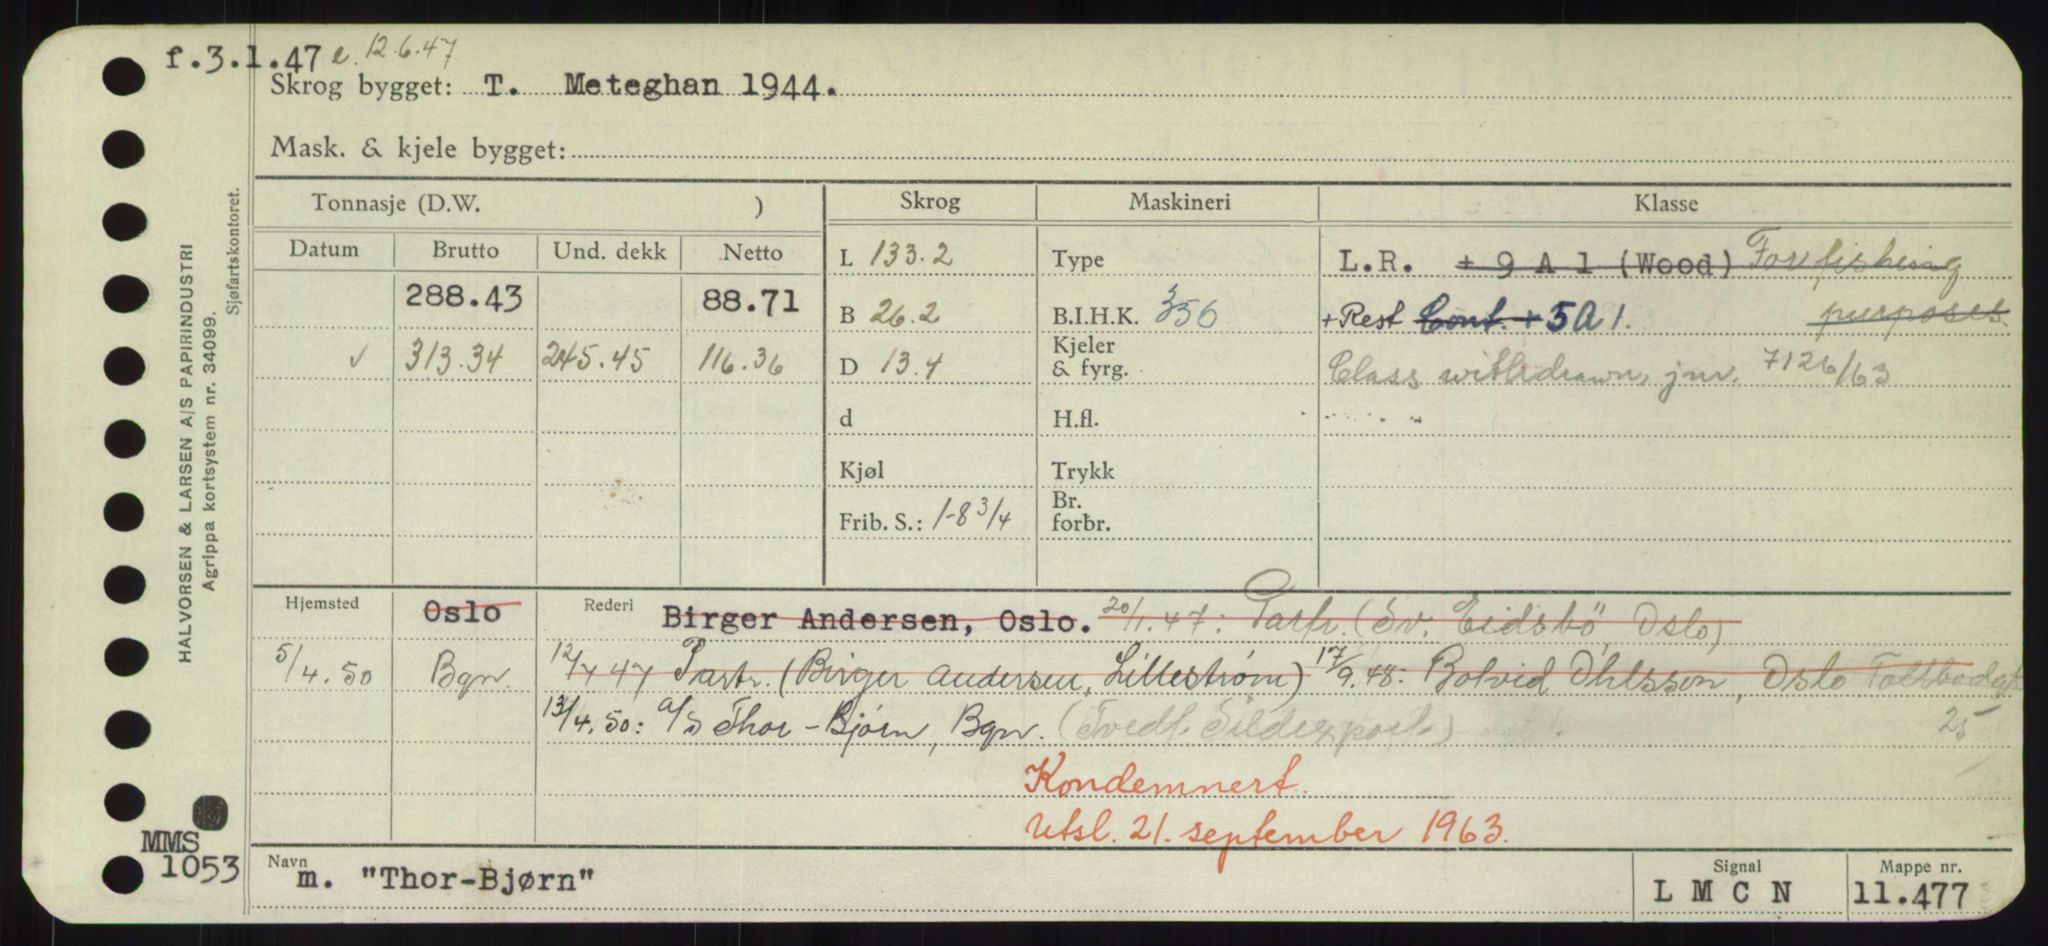 f.3.1.47 e. 12.6.47
Skrog bygget: T. Meteghan 1944.
Mask. & kjele bygget:
Tonnasje (D.W. ) Skrog Maskineri Klasse
Datum Brutto Und. dekk Netto
L 133.2 Type L.R. + 9 A 1 (Wood) For fishing
288.43 88.71 B 26.2 B.I.H.K. 350 +Rest Cont. + 5 A 1. purposes.
✓ 313.34 245.45 116.36 D 13.4 Kjeler & fyrg. Class withdrawn, jnr. 7126/63
d H.fl.
Kjøl Trykk
Frib. S.: 1-8 3/4 Br. forbr.
Hjemsted Oslo Rederi Birger Andersen, Oslo. 20/1.47: Partr. (Sv. Eidsbö Oslo)
5/4.50 Bgn. 12/7 47 Partr. (Birger Andersen, Lillestrøm) 17/9.48: Botvid Ohlsson, Oslo Tollbodgt
25
13/4.50: A/S Thor-Bjørn, Bgn. (Tvedt Sildexport)
Kondemnert.
Utsl. 21. september 1963.
Navn m. "Thor-Bjørn" Signal L M C N Mappe nr. 11.477
HALVORSEN & LARSEN A/S PAPIRINDUSTRI
Agrippa kortsystem nr. 34099.
Sjøfartskontoret.
MMS
1053